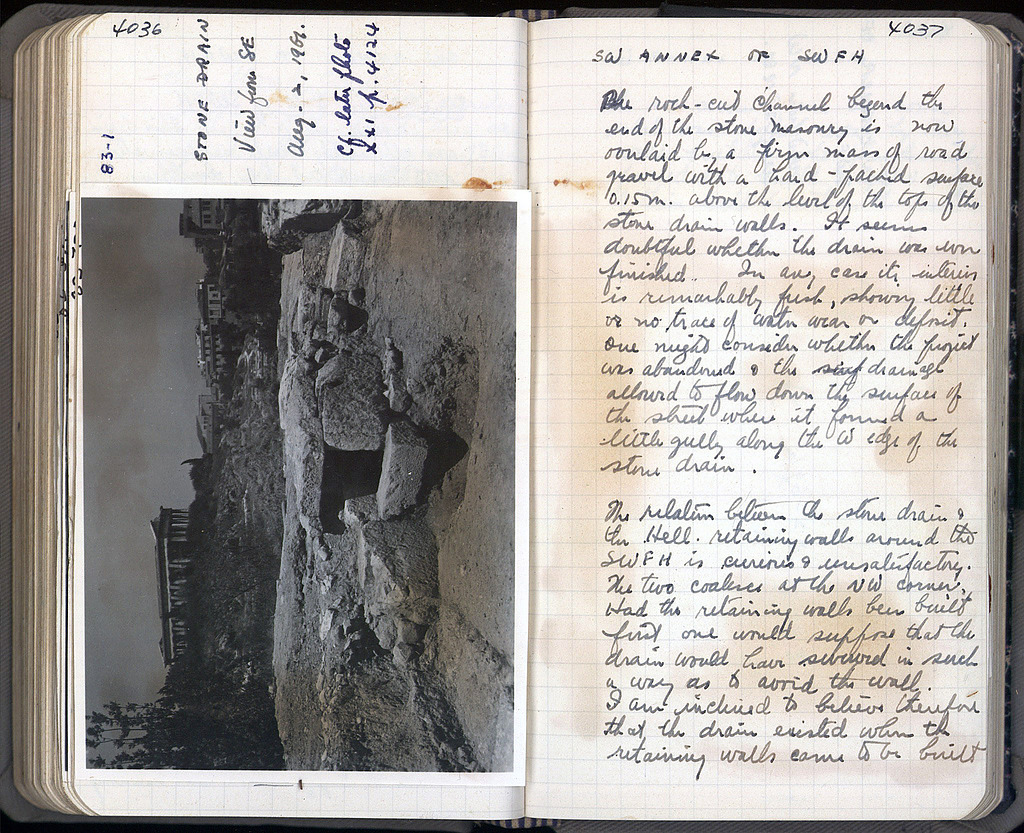 4036
STONE DRAIN
View from SE
Aug. 2, 1961.
Cf. later photo
XXI p. 4124
83-1
4037
SW ANNEX OF SWFH
The rock-cut channel beyond the
end of the stone masonry is now
overlaid by a firm mass of road
gravel with a hard-packed surface
0.15 m. above the level of the tops of the
stone drain walls. It seems
doubtful whether the drain was ever
finished. In any case its interior
is remarkably fresh, showing little
or no trace of water wear or deposit.
One might consider whether the project
was abandoned & the drainage
allowed to flow down the surface of
the street where it formed a
little gully along the W edge of the
stone drain.
The relation between the stone drain &
the Hell. retaining walls around the
SWFH is curious & unsatisfactory.
The two coalesce at the NW corner.
Had the retaining walls been built
first one would suppose that the
drain would have swerved in such
a way as to avoid the wall.
I am inclined to believe therefore
that the drain existed when the
retaining walls came to be built